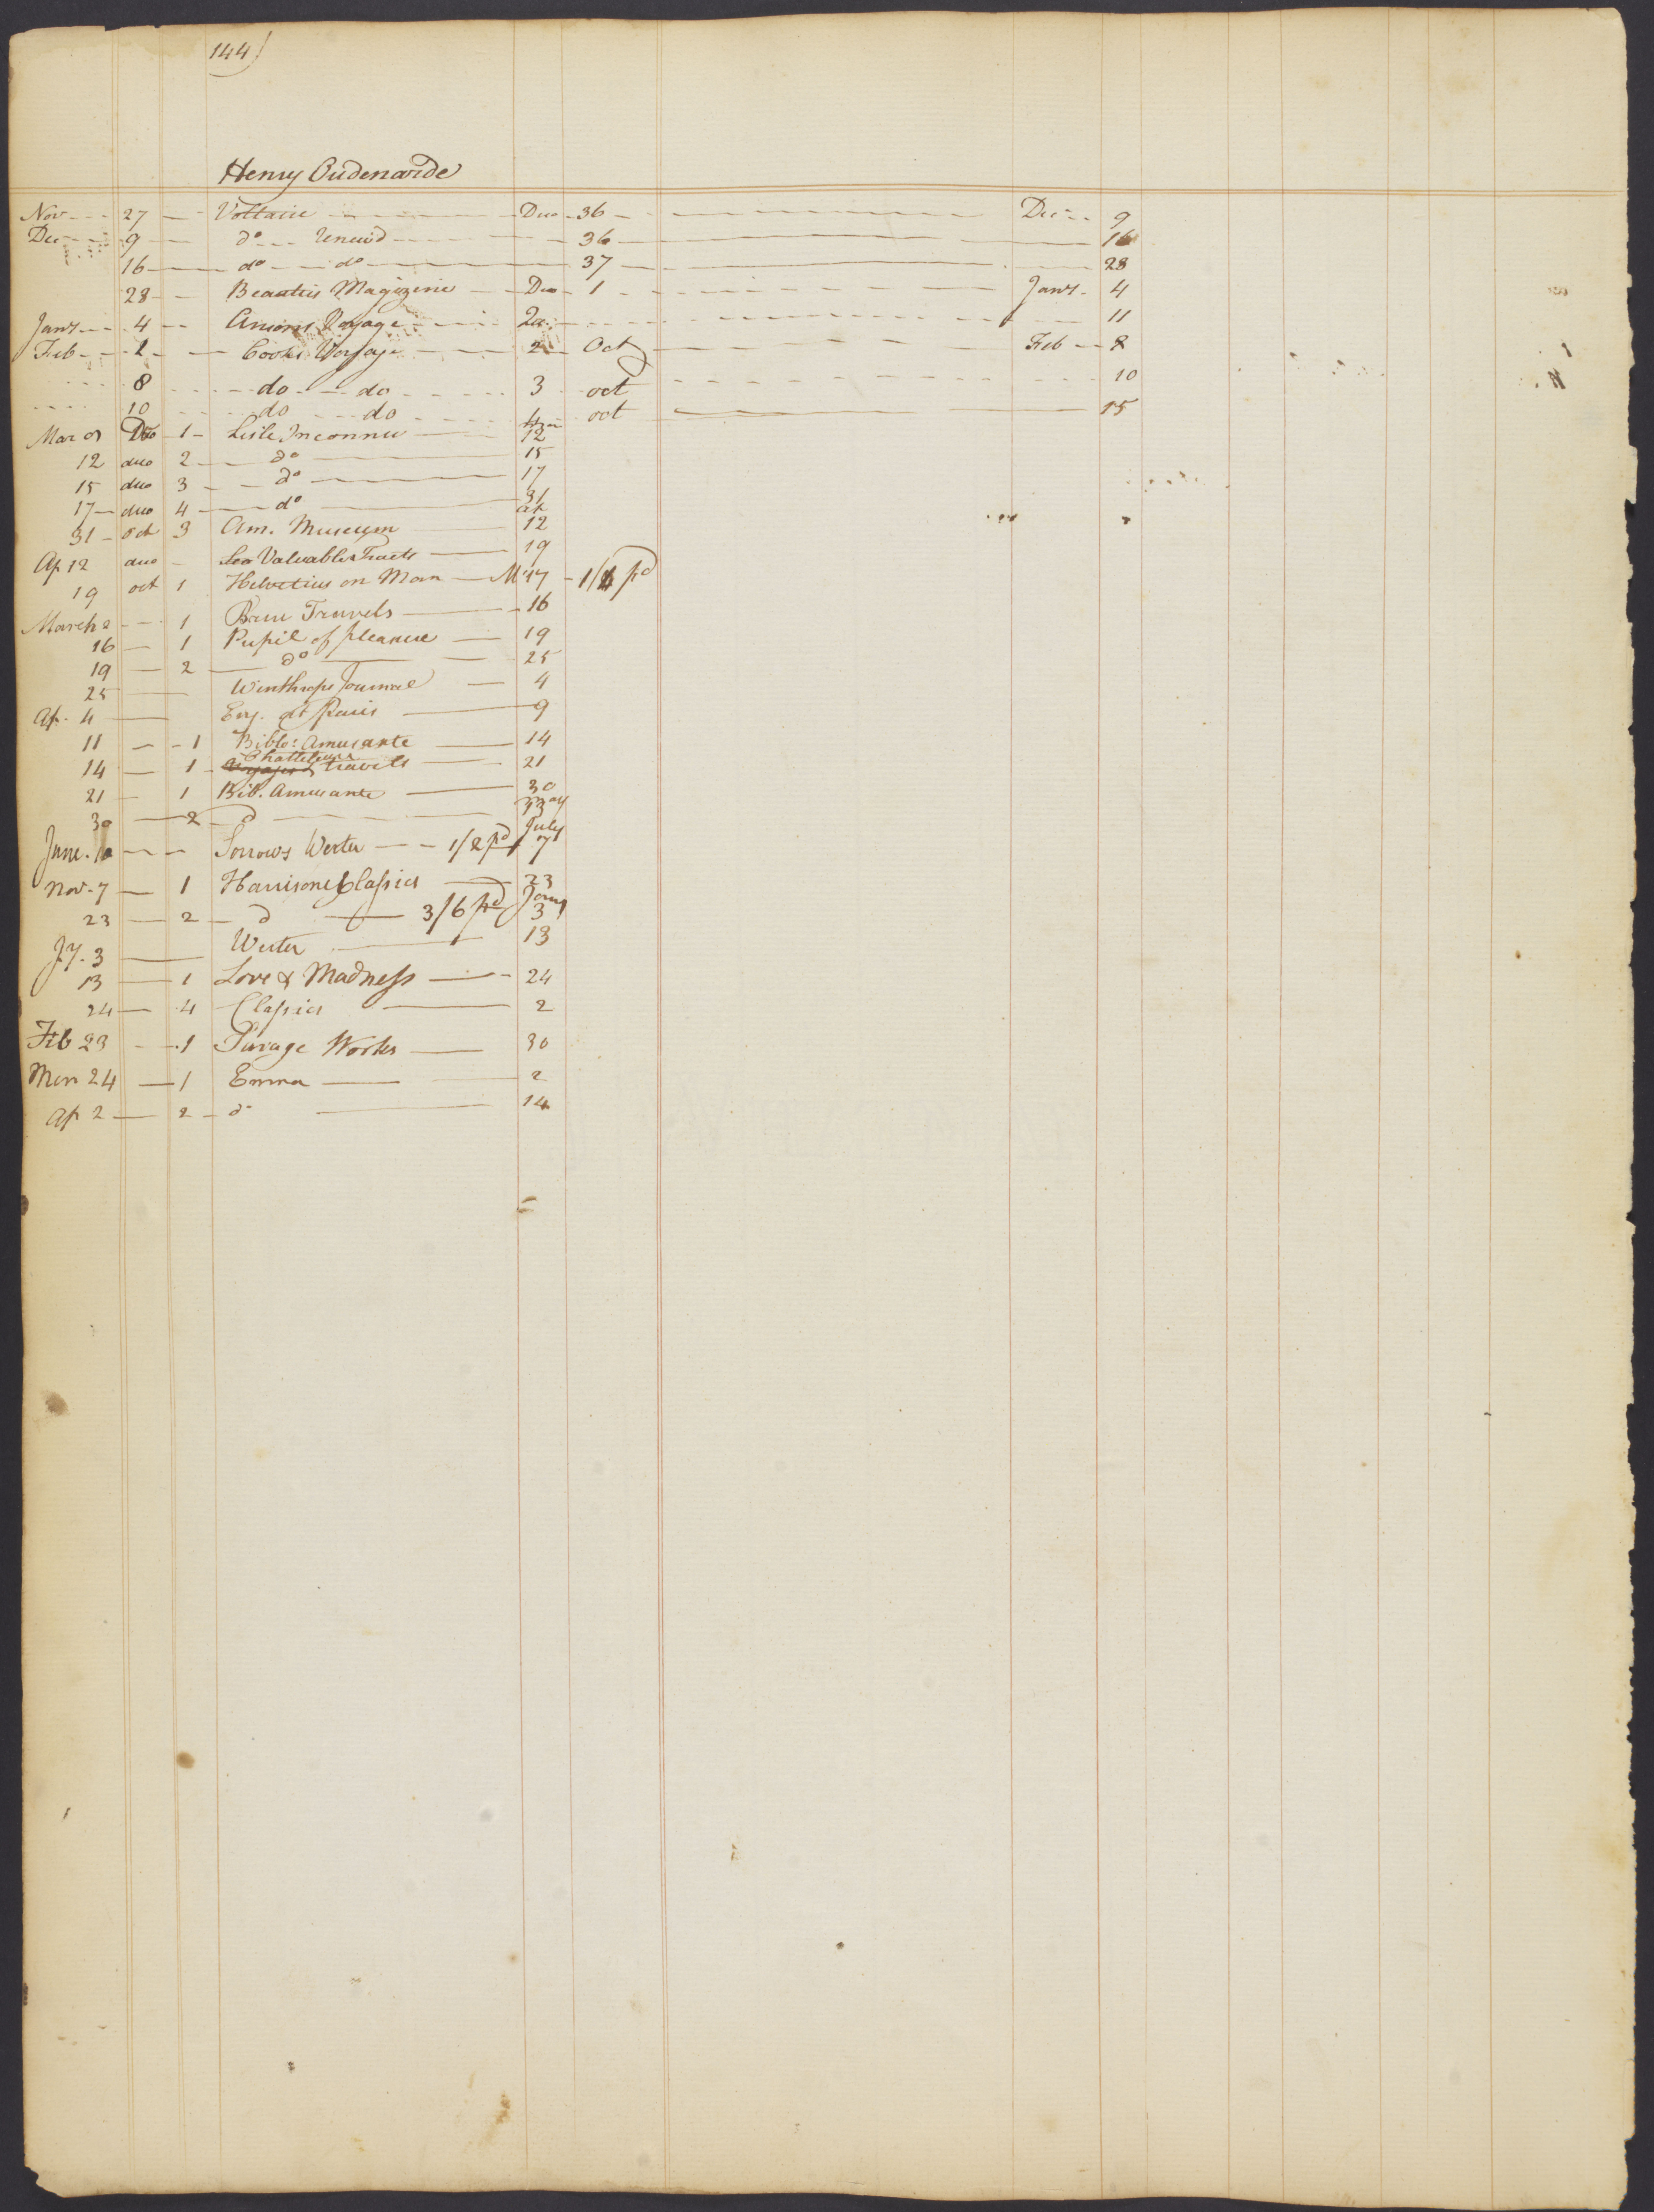 144)
Henry Oudenarde
Nov 27 Voltaire Duo 36 Dec 9
Dec 9 do Renewd 36 16
16 do do 37 28
28 Beauties Magizine Duo 1 Jany 4
Jany 4 Ansons Voyage 11
Feb 2 Cooks Voyage 2 Oct Feb 8
8 do do 3 oct 10
10 do do 4 oct 15
Mar Duo 1 Lisle Inconnu 12
12 duo 2 do 15
15 duo 3 do 17
17 duo 4 do 31
31 Oct 3 Am. Museum 12
Ap 12 duo Valuable Tracts 19
19 oct 1 Helvetius on Man M 17 pd
March 2 1 Travels 16
16 1 Pupil of pleasure 19
19 2 do 25
25 Winthrops Journal 4
Ap. 4 at Paris 9
11 1 Biblo: Amusante 14
14 1 travels 21
21 1 Bib. Amusante 30
30 2 d
June. Sorrows Werter 1/2 pd July 7
Nov. 7 1 Harrisons Classics 23
23 2 d 3/6 pd Jany 3
Jy. 3 Werter 13
13 1 Love & Madness 24
24 4 Classics 2
Feb 23 1 Savage Works 30
Mar 24 1 Emma 2
Ap 2 2 do 14